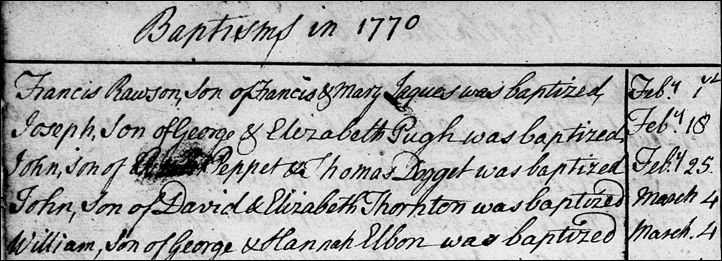 Baptisms in 1770
Francis Rawson, Son of Francis & Mary Jeques was baptized, Feb.y 1st
Joseph, Son of George & Elizabeth Pugh was baptized, Feb.y 18
John, Son of Peppet & Thomas Dogget was baptized Feb.y 25.
John, Son of David & Elizabeth Thornton was baptized March 4
William, Son of George & Hannah Elbon was baptized March. 4